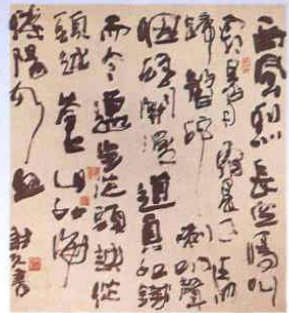 西風烈長空雁叫
霜晨月霜晨月馬
蹄聲碎喇叭聲
咽雄關漫道真如鐵
而今邁步從頭越從
頭越蒼山如海
殘陽如血
書